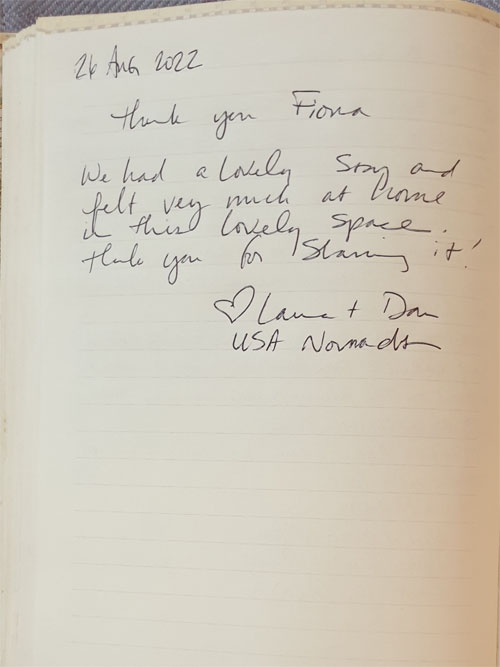 26 Aug 2022
Thank you Fiona
We had a lovely stay and
felt very much at home
in this lovely space.
Thank you for sharing it!
♡ Laura + Don
USA Nomads